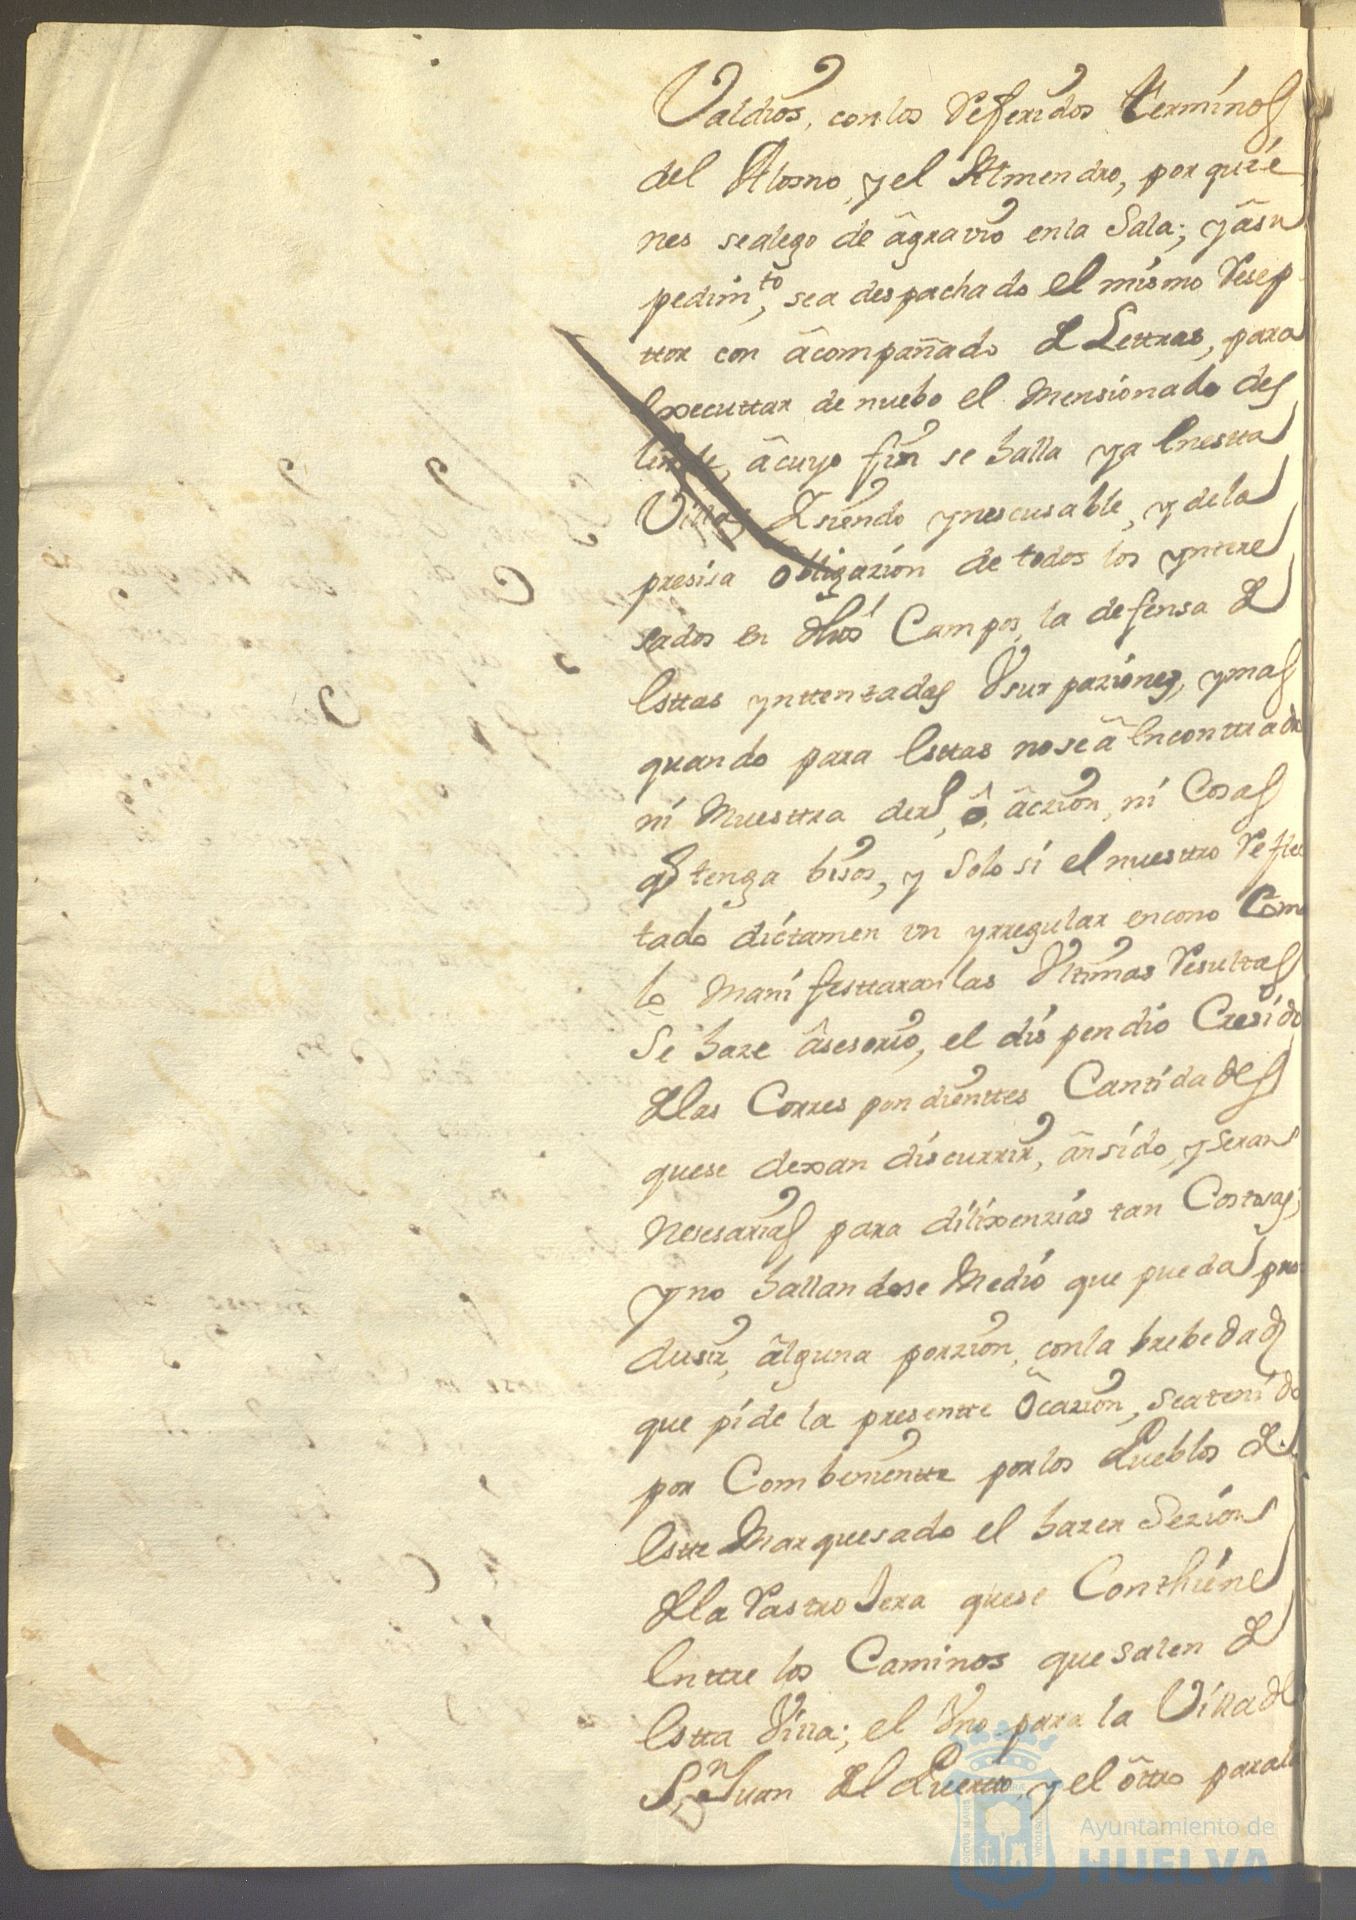 Valdios, con los Referidos terminos
del Alosno, y el Almendro, por quie
nes sealego de âgravio enla Sala; y âsu
pedimto, sea despachado el mismo Resep
ttor con âcompañado de Lettras, para
Executtar de nuebo el Mensionado des
linde, âcuyo fin se halla ya Enestta
Villa; Y siendo ynescusable, y dela
presisa obligazion de todos los yntere
sados en dhos Campos, la defensa de
Esttas ynttentadas Vsurpaziones, y mas
quando para Esttas nose â Encontrado
ni Muesttra dero, ô, âczion, ni Cosas
qe tenga bisos, y Solo si el nuesttro Reflec
tado dictamen vn yrregular encono Como
lo Manifesttaran las Vltimas Resultas
Se haze âsesorio, el dispendio Cresido
delas Correspondienttes Cantidades
quese dexan discurrir, ân sido, y seran
Nesesarias para dilixenzias tan Costosas;
y no hallandose Medio que pueda pro
dusir, âlguna porzion, conla brebedad
que pide la presentte ôcazion, sea tenido
por Combenientte porlos Pueblos de
Estte Marquesado el hazer Sezion
dela Rastrojera quese Conthiene
Enttre los Caminos que salen de
Estta Villa; el Vno para la Villa de
Sn Juan del Puertto, y el ôttro para la
Ayuntamiento de
HUELVA